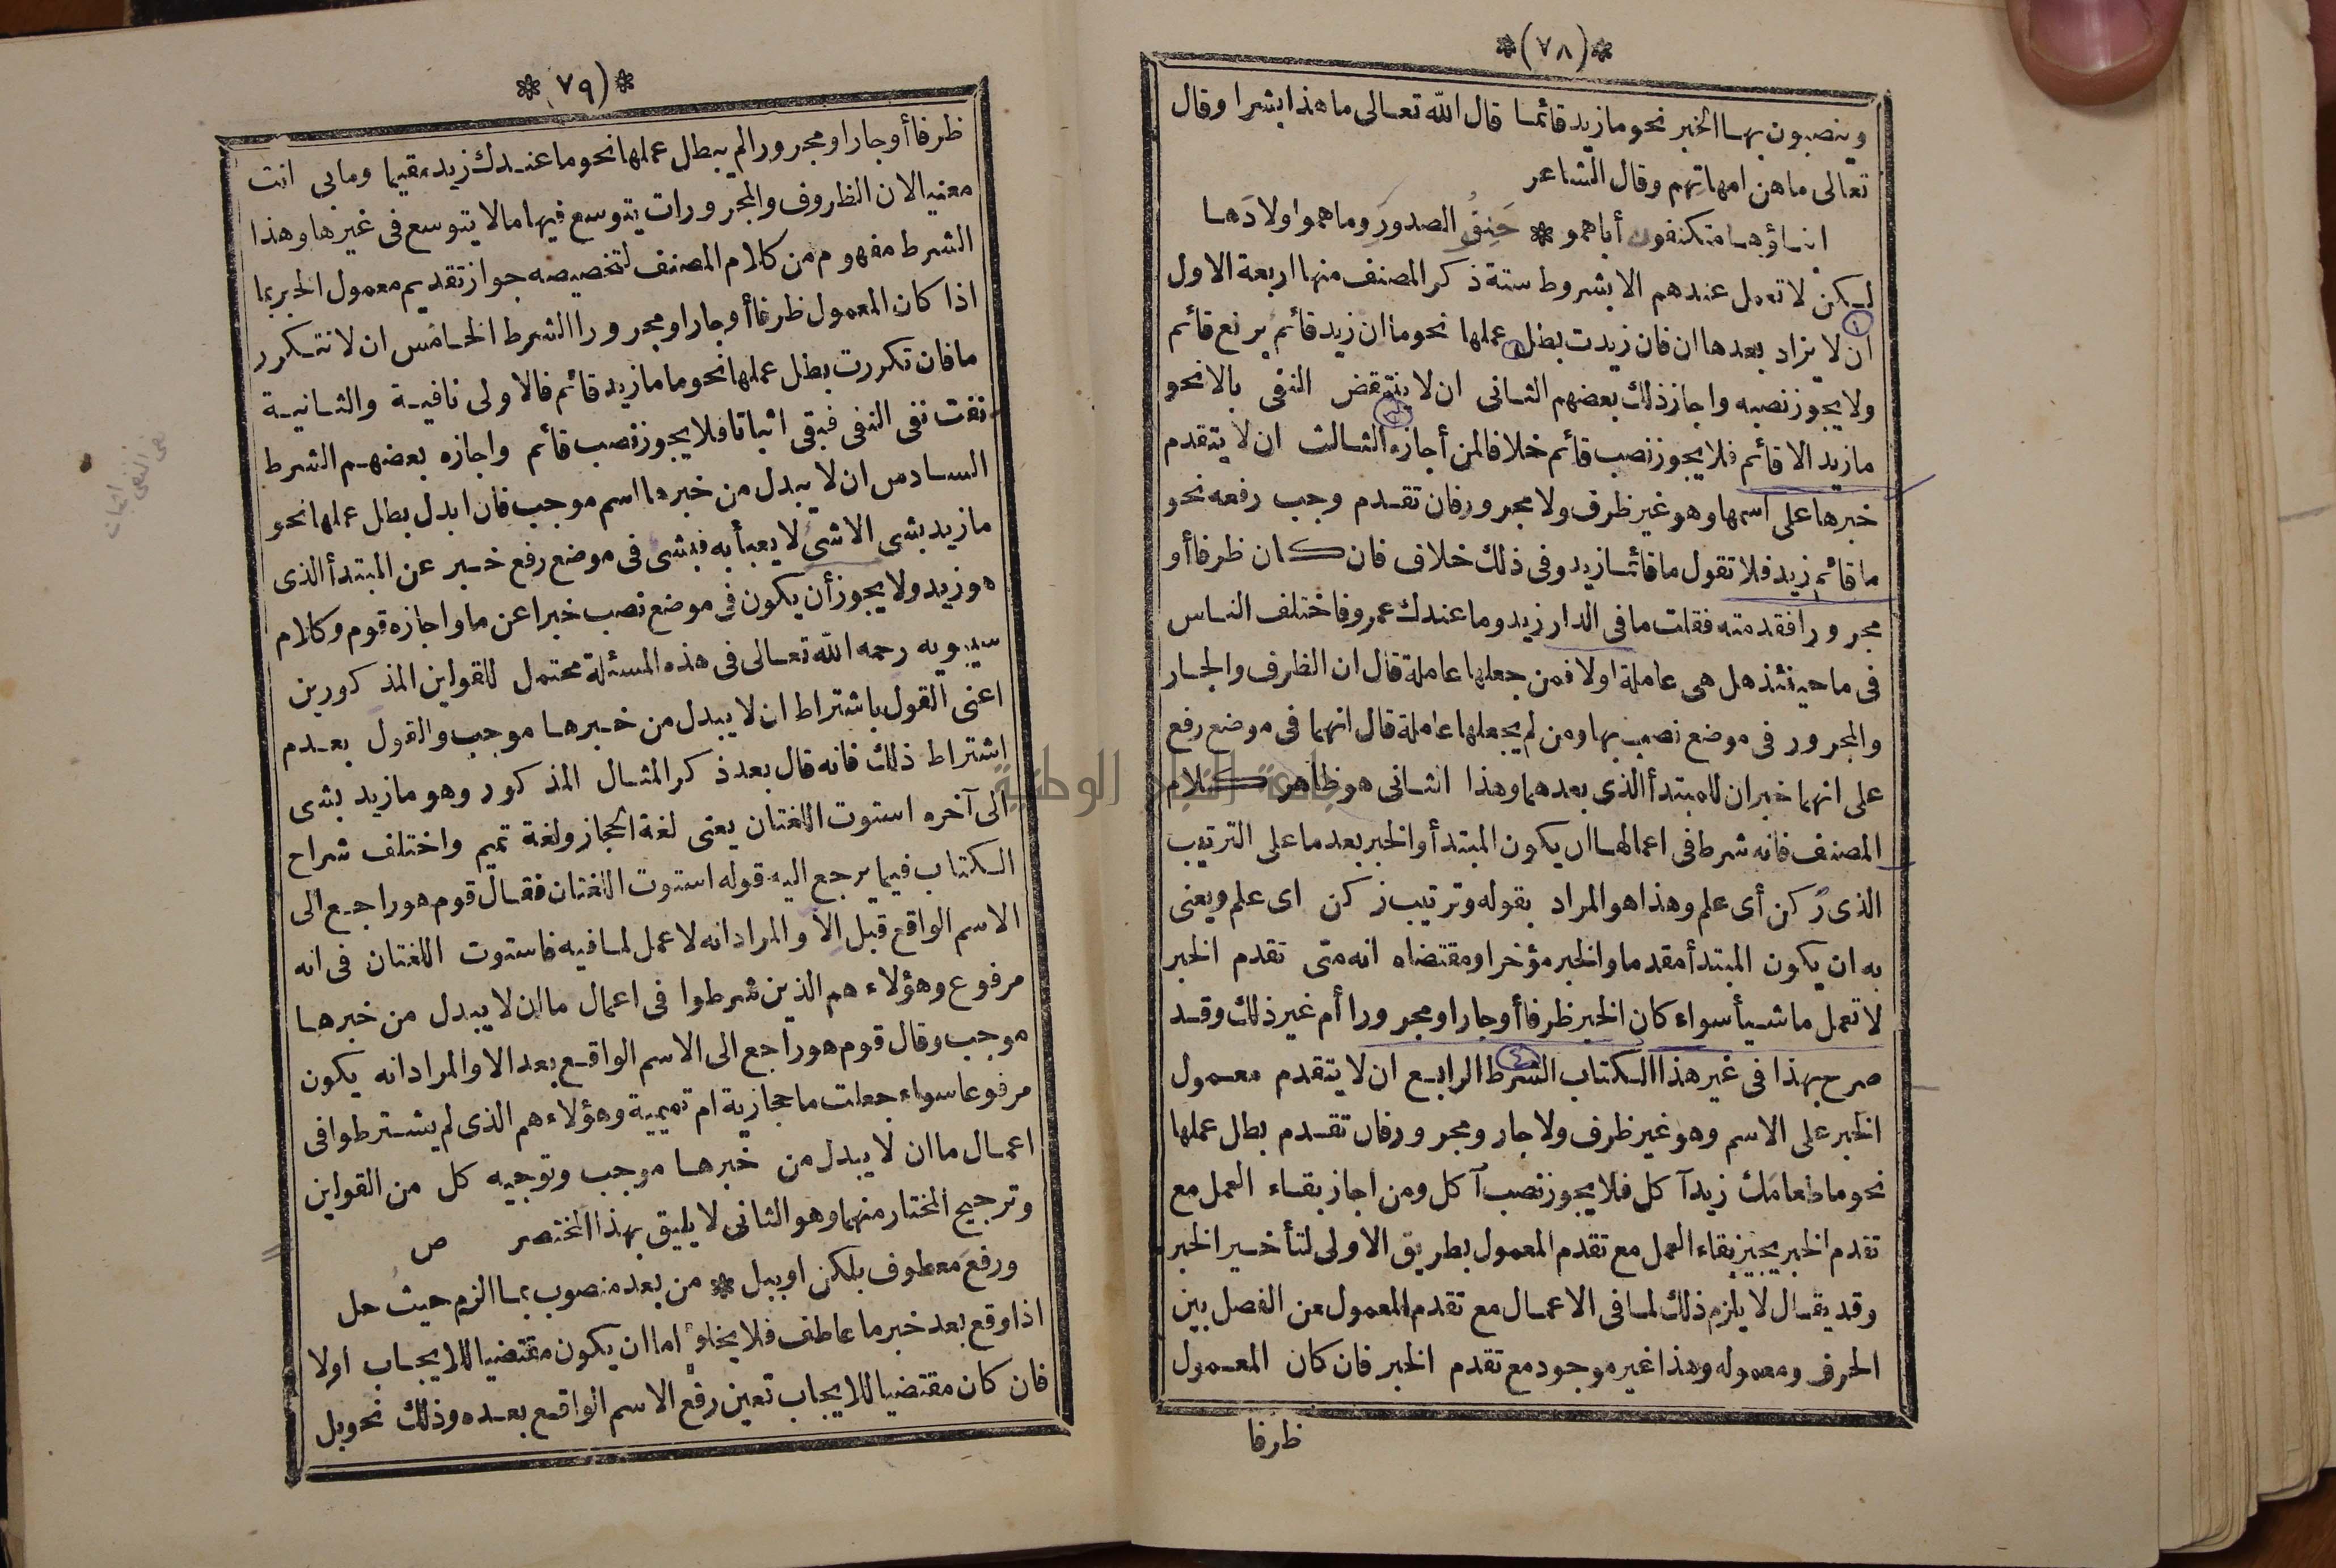 *(٧٨)*
وينصبون بها الخبر نحو ما زيد قائما قال الله تعالى ما هذا بشرا وقال
تعالى ما هن امهاتهم وقال الشاعر
ابناؤها متكنفون أباهمو * حَنِقُو الصدورَ وما هموا ولادَها
لكن لا تعمل عندهم الا بشروط ستة ذكر المصنف منها اربعة الاول
ان لا يزاد بعدها ان فان زيدت بطل عملها نحو ما ان زيد قائم برفع قائم
ولا يجوز نصبه واجاز ذلك بعضهم الثانى ان لا ينتقض النفى بالا نحو
ما زيد الا قائم فلا يجوز نصب قائم خلافا لمن أجازه الثالث ان لا يتقدم
خبرها على اسمها وهو غير ظرف ولا مجرور فان تقدم وجب رفعه نحو
ما قائم زيد فلا تقول ما قائما زيد وفى ذلك خلاف فان كان ظرفا أو
مجرورا فقدمته فقلت ما فى الدار زيد وما عندك عمرو فاختلف الناس
فى ما حينئذ هل هى عاملة اولا فمن جعلها عاملة قال ان الظرف والجار
والمجرور فى موضع نصب بها ومن لم يجعلها عاملة قال انهما فى موضع رفع
على انهما خبران للمبتدأ الذى بعدهما وهذا الثانى هو ظاهر كلام
المصنف فانه شرط فى اعمالها ان يكون المبتدأ والخبر بعد ما على الترتيب
الذى زكن أى علم وهذا هو المراد بقوله وترتيب زكن اى علم ويعنى
به ان يكون المبتدأ مقدما والخبر مؤخرا ومقتضاه انه متى تقدم الخبر
لا تعمل ما شيأ سواء كان الخبر ظرفا أو جارا ومجرورا أم غير ذلك وقد
صرح بهذا فى غير هذا الكتاب الشرط الرابع ان لا يتقدم معمول
الخبر على الاسم وهو غير ظرف ولا جار ومجرور فان تقدم بطل عملها
نحو ما طعامك زيد آكل فلا يجوز نصب آكل ومن اجاز بقاء العمل مع
تقدم الخبر يجيز بقاء العمل مع تقدم المعمول بطريق الاولى لتأخير الخبر
وقد يقال لا يلزم ذلك لما فى الاعمال مع تقدم المعمول من الفصل بين
الحرف ومعموله وهذا غير موجود مع تقدم الخبر فان كان المعمول
ظرفا
*(٧٩)*
ظرفا أو جارا ومجرورا لم يبطل عملها نحو ما عندك زيد مقيما وما بى انت
معنيا لان الظروف والمجرورات يتوسع فيها ما لا يتوسع فى غيرها وهذا
الشرط مفهوم من كلام المصنف لتخصيصه جواز تقديم معمول الخبر بما
اذا كان المعمول ظرفا أو جارا ومجرورا الشرط الخامس ان لا تتكرر
ما فان تكررت بطل عملها نحو ما ما زيد قائم فالاولى نافية والثانية
نفت نفى النفى فبقى اثباتا فلا يجوز نصب قائم واجازه بعضهم الشرط
السادس ان لا يبدل من خبرها اسم موجب فان ابدل بطل عملها نحو
ما زيد بشى الا شئ لا يعبأ به فبشى فى موضع رفع خبر عن المبتدأ الذى
هو زيد ولا يجوز أن يكون فى موضع نصب خبرا عن ما واجازه قوم وكلام
سيبويه رحمه الله تعالى فى هذه المسئلة محتمل للقولين المذكورين
اعنى القول باشتراط ان لا يبدل من خبرها موجب والقول بعدم
اشتراط ذلك فانه قال بعد ذكر المثال المذكور وهو ما زيد بشى
الى آخره استوت اللغتان يعنى لغة الحجاز ولغة تميم واختلف شراح
الكتاب فيما يرجع اليه قوله استوت اللغتان فقال قوم هو راجع الى
الاسم الواقع قبل الا والمراد انه لا عمل لما فيه فاستوت اللغتان فى انه
مرفوع وهؤلاء هم الذين شرطوا فى اعمال ما ان لا يبدل من خبرها
موجب وقال قوم هو راجع الى الاسم الواقع بعد الا والمراد انه يكون
مرفوعا سواء جعلت ما حجازية ام تميمية وهؤلاء هم الذى لم يشترطوا فى
اعمال ما ان لا يبدل من خبرها موجب وتوجيه كل من القولين
وترجيح المختار منهما وهو الثانى لا يليق بهذا المختصر ص
ورفع معطوف بلكن او ببل * من بعد منصوب بما الزم حيث حل
اذا وقع بعد خبر ما عاطف فلا يخلو اما ان يكون مقتضيا للايجاب اولا
فان كان مقتضيا للايجاب تعين رفع الاسم الواقع بعده وذلك نحو بل
نفى النفى اثبات
جامعة النجاح الوطنية